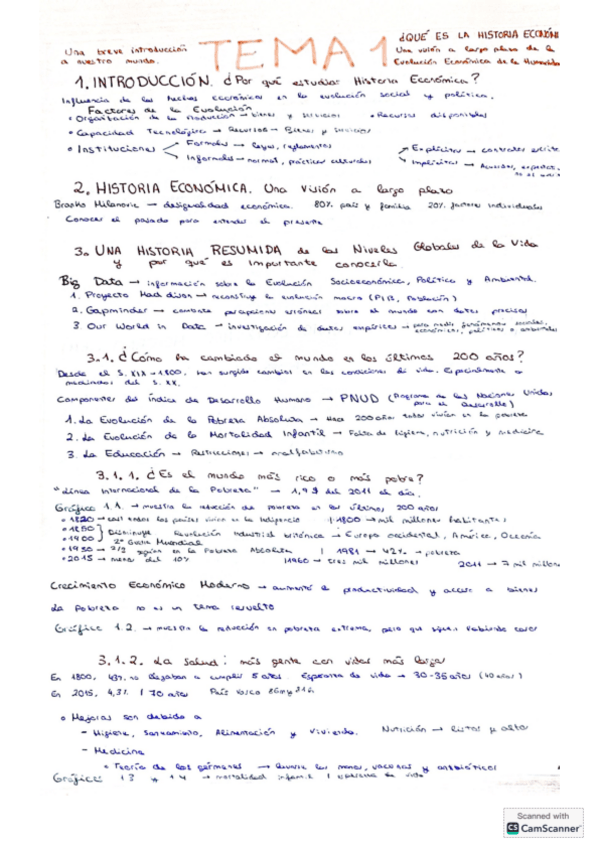 Una breve introducción
a nuestro mundo.
TEMA 1
¿QUÉ ES LA HISTORIA ECONÓMI
Una visión a largo plazo de la
Evolución Económica de la Humanida
1. INTRODUCCIÓN. ¿Por qué estudiar Historia Económica?
Influencia de los hechos económicos en la evolución social y política.
Factores de la Evolución
• Organización de la Producción → bienes y servicios • Recursos disponibles
• Capacidad Tecnológica → Recursos → Bienes y servicios
• Instituciones
Formales → leyes, reglamentos
Informales → normas, prácticas culturales
Explícitos → contratos escrito
Implícitos →
2. HISTORIA ECONÓMICA. Una visión a largo plazo
Branko Milanovic → desigualdad económica. 80% país y familia 20% factores individuales
Conocer el pasado para entender el presente
3. UNA HISTORIA RESUMIDA de los Niveles Globales de la Vida
y por qué es importante conocerla.
Big Data → información sobre la Evolución Socioeconómica, Política y Ambiental.
1. Proyecto Maddison → reconstruye la evolución macro (PIB, Población)
2. Gapminder → combate percepciones erróneas sobre el mundo con datos precisos
3. Our World in Data → investigación de datos empíricos → para medir fenómenos sociales,
económicos, políticos o ambientales
3.1. ¿Cómo ha cambiado el mundo en los últimos 200 años?
Desde el S. XIX → 1800, han surgido cambios en las condiciones de vida, especialmente a
mediados del S. XX.
Componentes del Índice de Desarrollo Humano → PNUD (Programa de las Naciones Unidas
para el desarrollo)
1. La Evolución de la Pobreza Absoluta → Hace 200 años todos vivían en la pobreza
2. La Evolución de la Mortalidad Infantil → Falta de higiene, nutrición y medicina
3. La Educación → Restricciones → analfabetismo
3.1.1. ¿Es el mundo más rico o más pobre?
"Línea Internacional de la Pobreza" → 1,9 $ del 2011 al día.
Gráfico 1.1. → muestra la reducción de pobreza en los últimos 200 años
• 1820 → casi todos los países vivían en la indigencia | 1800 → mil millones habitantes
• 1850
• 1900 } Disminuye Revolución Industrial británica → Europa occidental, América, Oceanía
2ª Guerra Mundial
• 1950 → 2/3 seguían en la Pobreza Absoluta | 1981 → 42% → pobreza
• 2015 → menos del 10% 1960 → tres mil millones 2011 → 7 mil millon
Crecimiento Económico Moderno → aumentó la productividad y acceso a bienes
La Pobreza no es un tema resuelto
Gráfico 1.2. → muestra la reducción en pobreza extrema, pero que siguen habiendo casos
3.1.2. La salud: más gente con vidas más largas
En 1800, 43% no llegaban a cumplir 5 años. Esperanza de vida → 30-35 años (40 años)
En 2015, 4,3% | 70 años País Vasco 86m y 81h.
• Mejoras son debido a
- Higiene, Saneamiento, Alimentación y Vivienda. Nutrición →
- Medicina
• Teoría de los gérmenes → lavarse las manos, vacunas y antibióticos
Gráficos 1.3 y 1.4 → mortalidad infantil | esperanza de vida
Scanned with
CS CamScanner